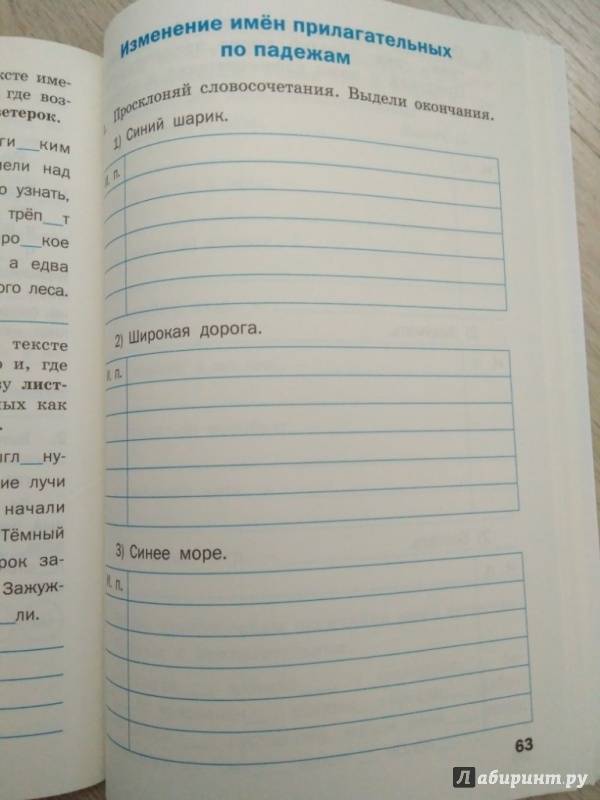 ксте име-
где воз-
етерок.
ги__ким
ели над
о узнать,
трёп__т
ро__кое
а едва
ого леса.
тексте
о и, где
ву лист-
ных как
ыгл__ну-
ие лучи
начали
Тёмный
рок за-
Зажуж-
__ли.
Изменение имён прилагательных
по падежам
Просклоняй словосочетания. Выдели окончания.
1) Синий шарик.
И. п.
2) Широкая дорога.
И. п.
3) Синее море.
И. п.
63
Лабиринт.ру